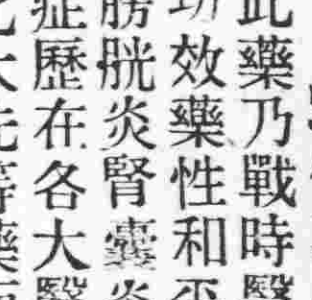 此藥乃戰時醫
功效藥性和平
膀胱炎腎囊炎
症歷在各大醫